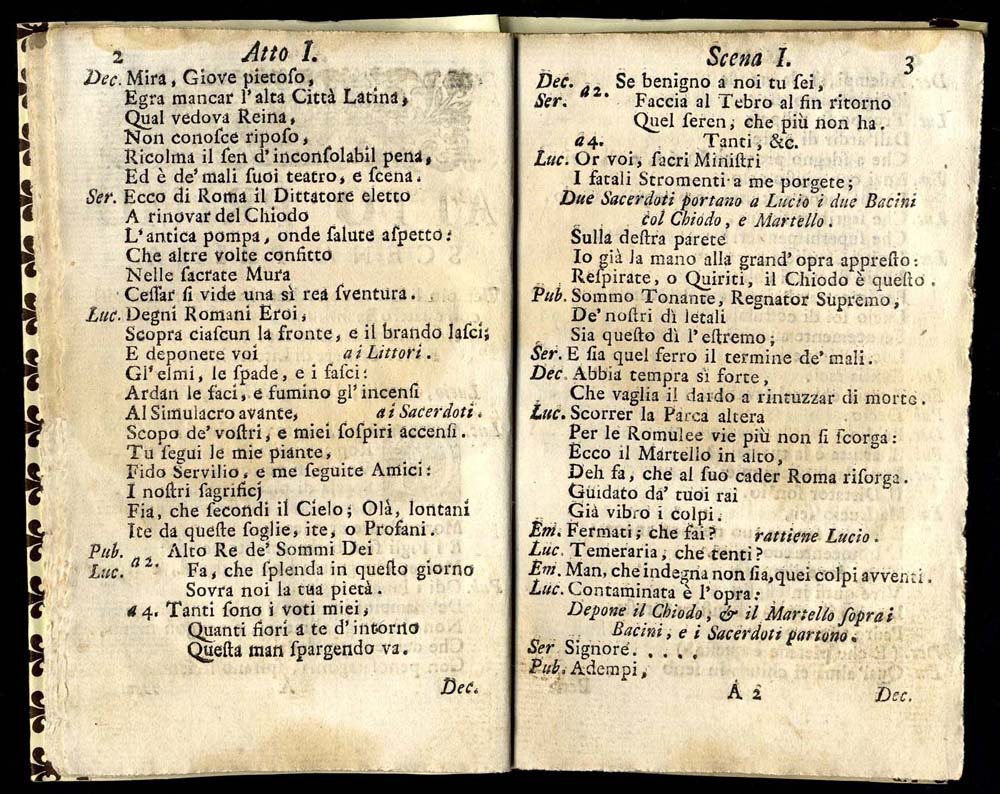 2 Atto I.
Dec. Mira, Giove pietoſo,
Egra mancar l'alta Città Latina,
Qual vedova Reina,
Non conoſce ripoſo,
Ricolma il ſen d'inconſolabil pena,
Ed è de' mali ſuoi teatro, e ſcena.
Ser. Ecco di Roma il Dittatore eletto
A rinovar del Chiodo
L'antica pompa, onde ſalute aſpetto:
Che altre volte confitto
Nelle ſacrate Mura
Ceſſar ſi vide una sì rea ſventura.
Luc. Degni Romani Eroi,
Scopra ciaſcun la fronte, e il brando laſci;
E deponete voi ai Littori.
Gl'elmi, le ſpade, e i faſci:
Ardan le faci, e fumino gl'incenſi
Al Simulacro avante, ai Sacerdoti.
Scopo de' voſtri, e miei ſoſpiri accenſi.
Tu ſegui le mie piante,
Fido Servilio, e me ſeguite Amici:
I noſtri ſagrificj
Fia, che ſecondi il Cielo; Olà, lontani
Ite da queſte ſoglie, ite, o Profani.
Pub. a 2. Alto Re de' Sommi Dei
Luc. Fa, che ſplenda in queſto giorno
Sovra noi la tua pietà.
a 4. Tanti ſono i voti miei,
Quanti fiori a te d'intorno
Queſta man ſpargendo va.
Dec.
Scena I. 3
Dec. a 2. Se benigno a noi tu ſei,
Ser. Faccia al Tebro al fin ritorno
Quel ſeren, che più non ha.
a 4. Tanti, &c.
Luc. Or voi, ſacri Miniſtri
I fatali Stromenti a me porgete;
Due Sacerdoti portano a Lucio i due Bacini
col Chiodo, e Martello.
Sulla deſtra parete
Io già la mano alla grand'opra appreſto:
Reſpirate, o Quiriti, il Chiodo è queſto.
Pub. Sommo Tonante, Regnator Supremo,
De' noſtri dì letali
Sia queſto dì l'eſtremo;
Ser. E ſia quel ferro il termine de' mali.
Dec. Abbia tempra sì forte,
Che vaglia il dardo a rintuzzar di morte.
Luc. Scorrer la Parca altera
Per le Romulee vie più non ſi ſcorga:
Ecco il Martello in alto,
Deh fa, che al ſuo cader Roma riſorga.
Guidato da' tuoi rai
Già vibro i colpi.
Em. Fermati; che fai? rattiene Lucio.
Luc. Temeraria, che tenti?
Em. Man, che indegna non ſia, quei colpi avventi.
Luc. Contaminata è l'opra:
Depone il Chiodo, & il Martello ſopra i
Bacini, e i Sacerdoti partono.
Ser Signore. . . . .
Pub. Adempi,
A 2 Dec.